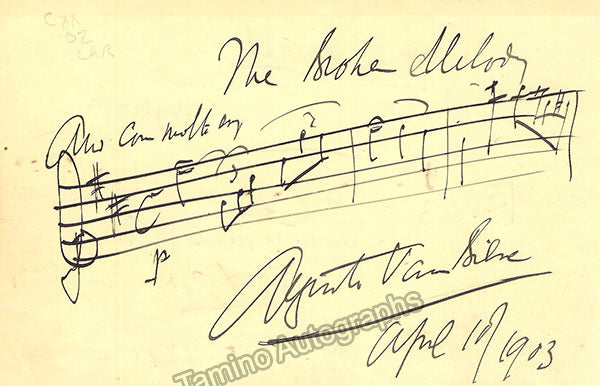 The Broken Melody
con molto
p
Auguste Van Biene
April 10/1903
Tamino Autographs